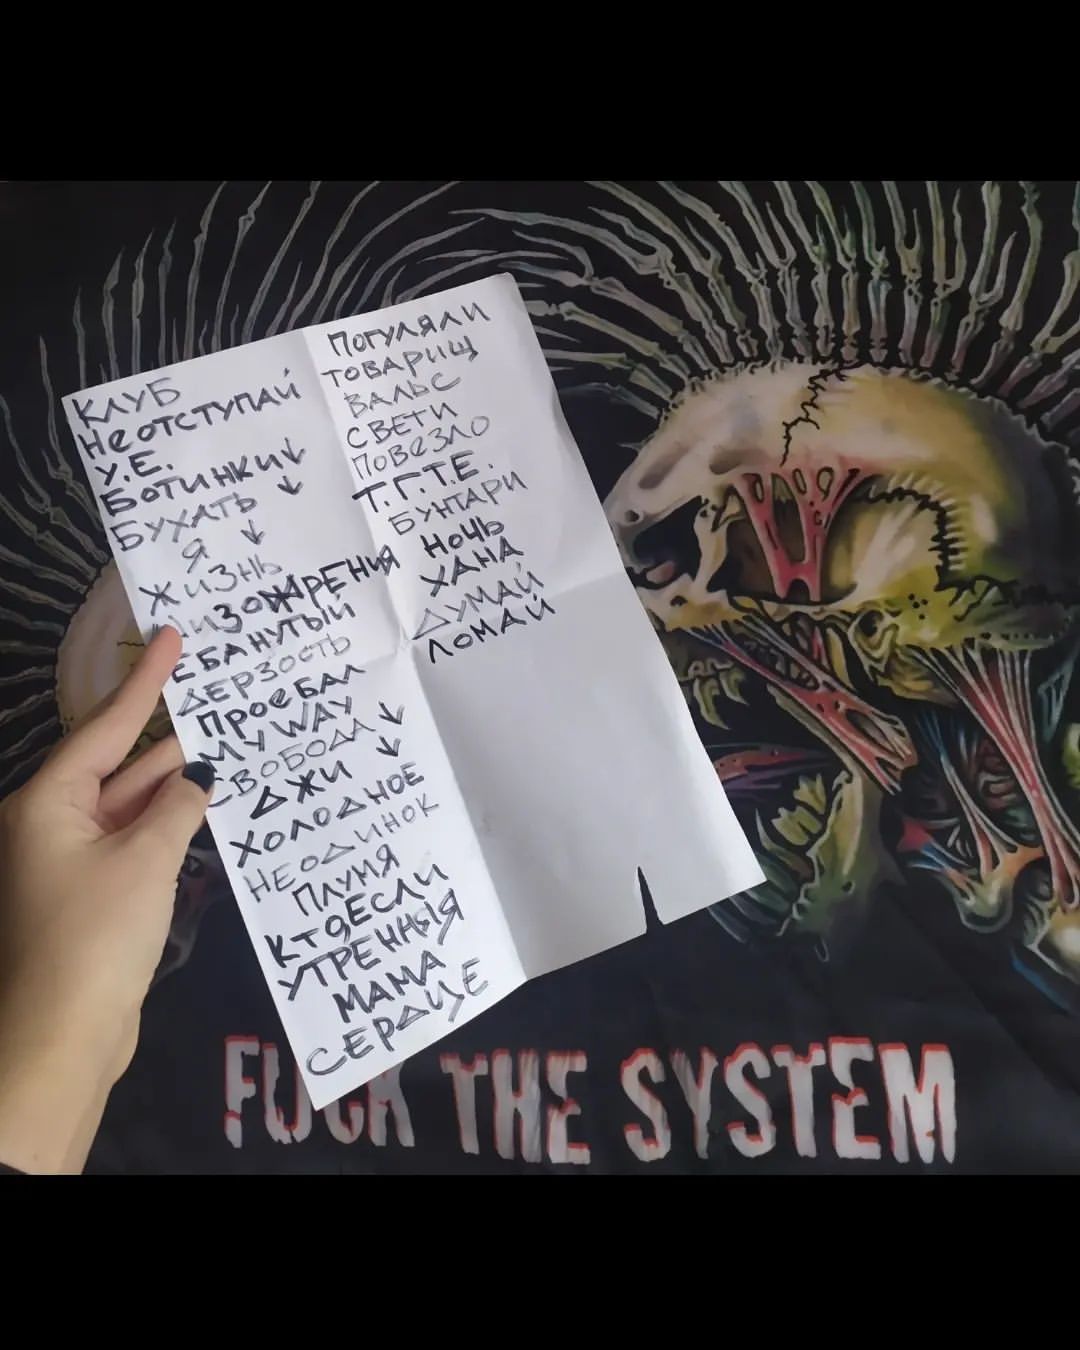 КЛУБ
НеОТСТУПАЙ
У.Е.
БОТИНКИ↓
БУХАТЬ ↓
Я ↓
ЖИЗНЬ
ЕБАНУТЫЙ
ДЕРЗОСТЬ
ПРОеБАЛ
MY WAY
СВОБОДА ↓
ДЖИ ↓
ХОЛОДНОЕ
НЕОДИНОК
ПЛУНЯ
КТОЕСЛИ
УТРЕННЯЯ
МАМА
СЕРДЦЕ
ПОГУЛЯЛИ
ТОВАРИЩ
ВАЛЬС
СВЕТИ
ПОВеЗЛО
Т.Г.Т.Е.
БУНТАРИ
НОЧЬ
ХАНА
ДУМАЙ
ЛОМАЙ
FUCK THE SYSTEM